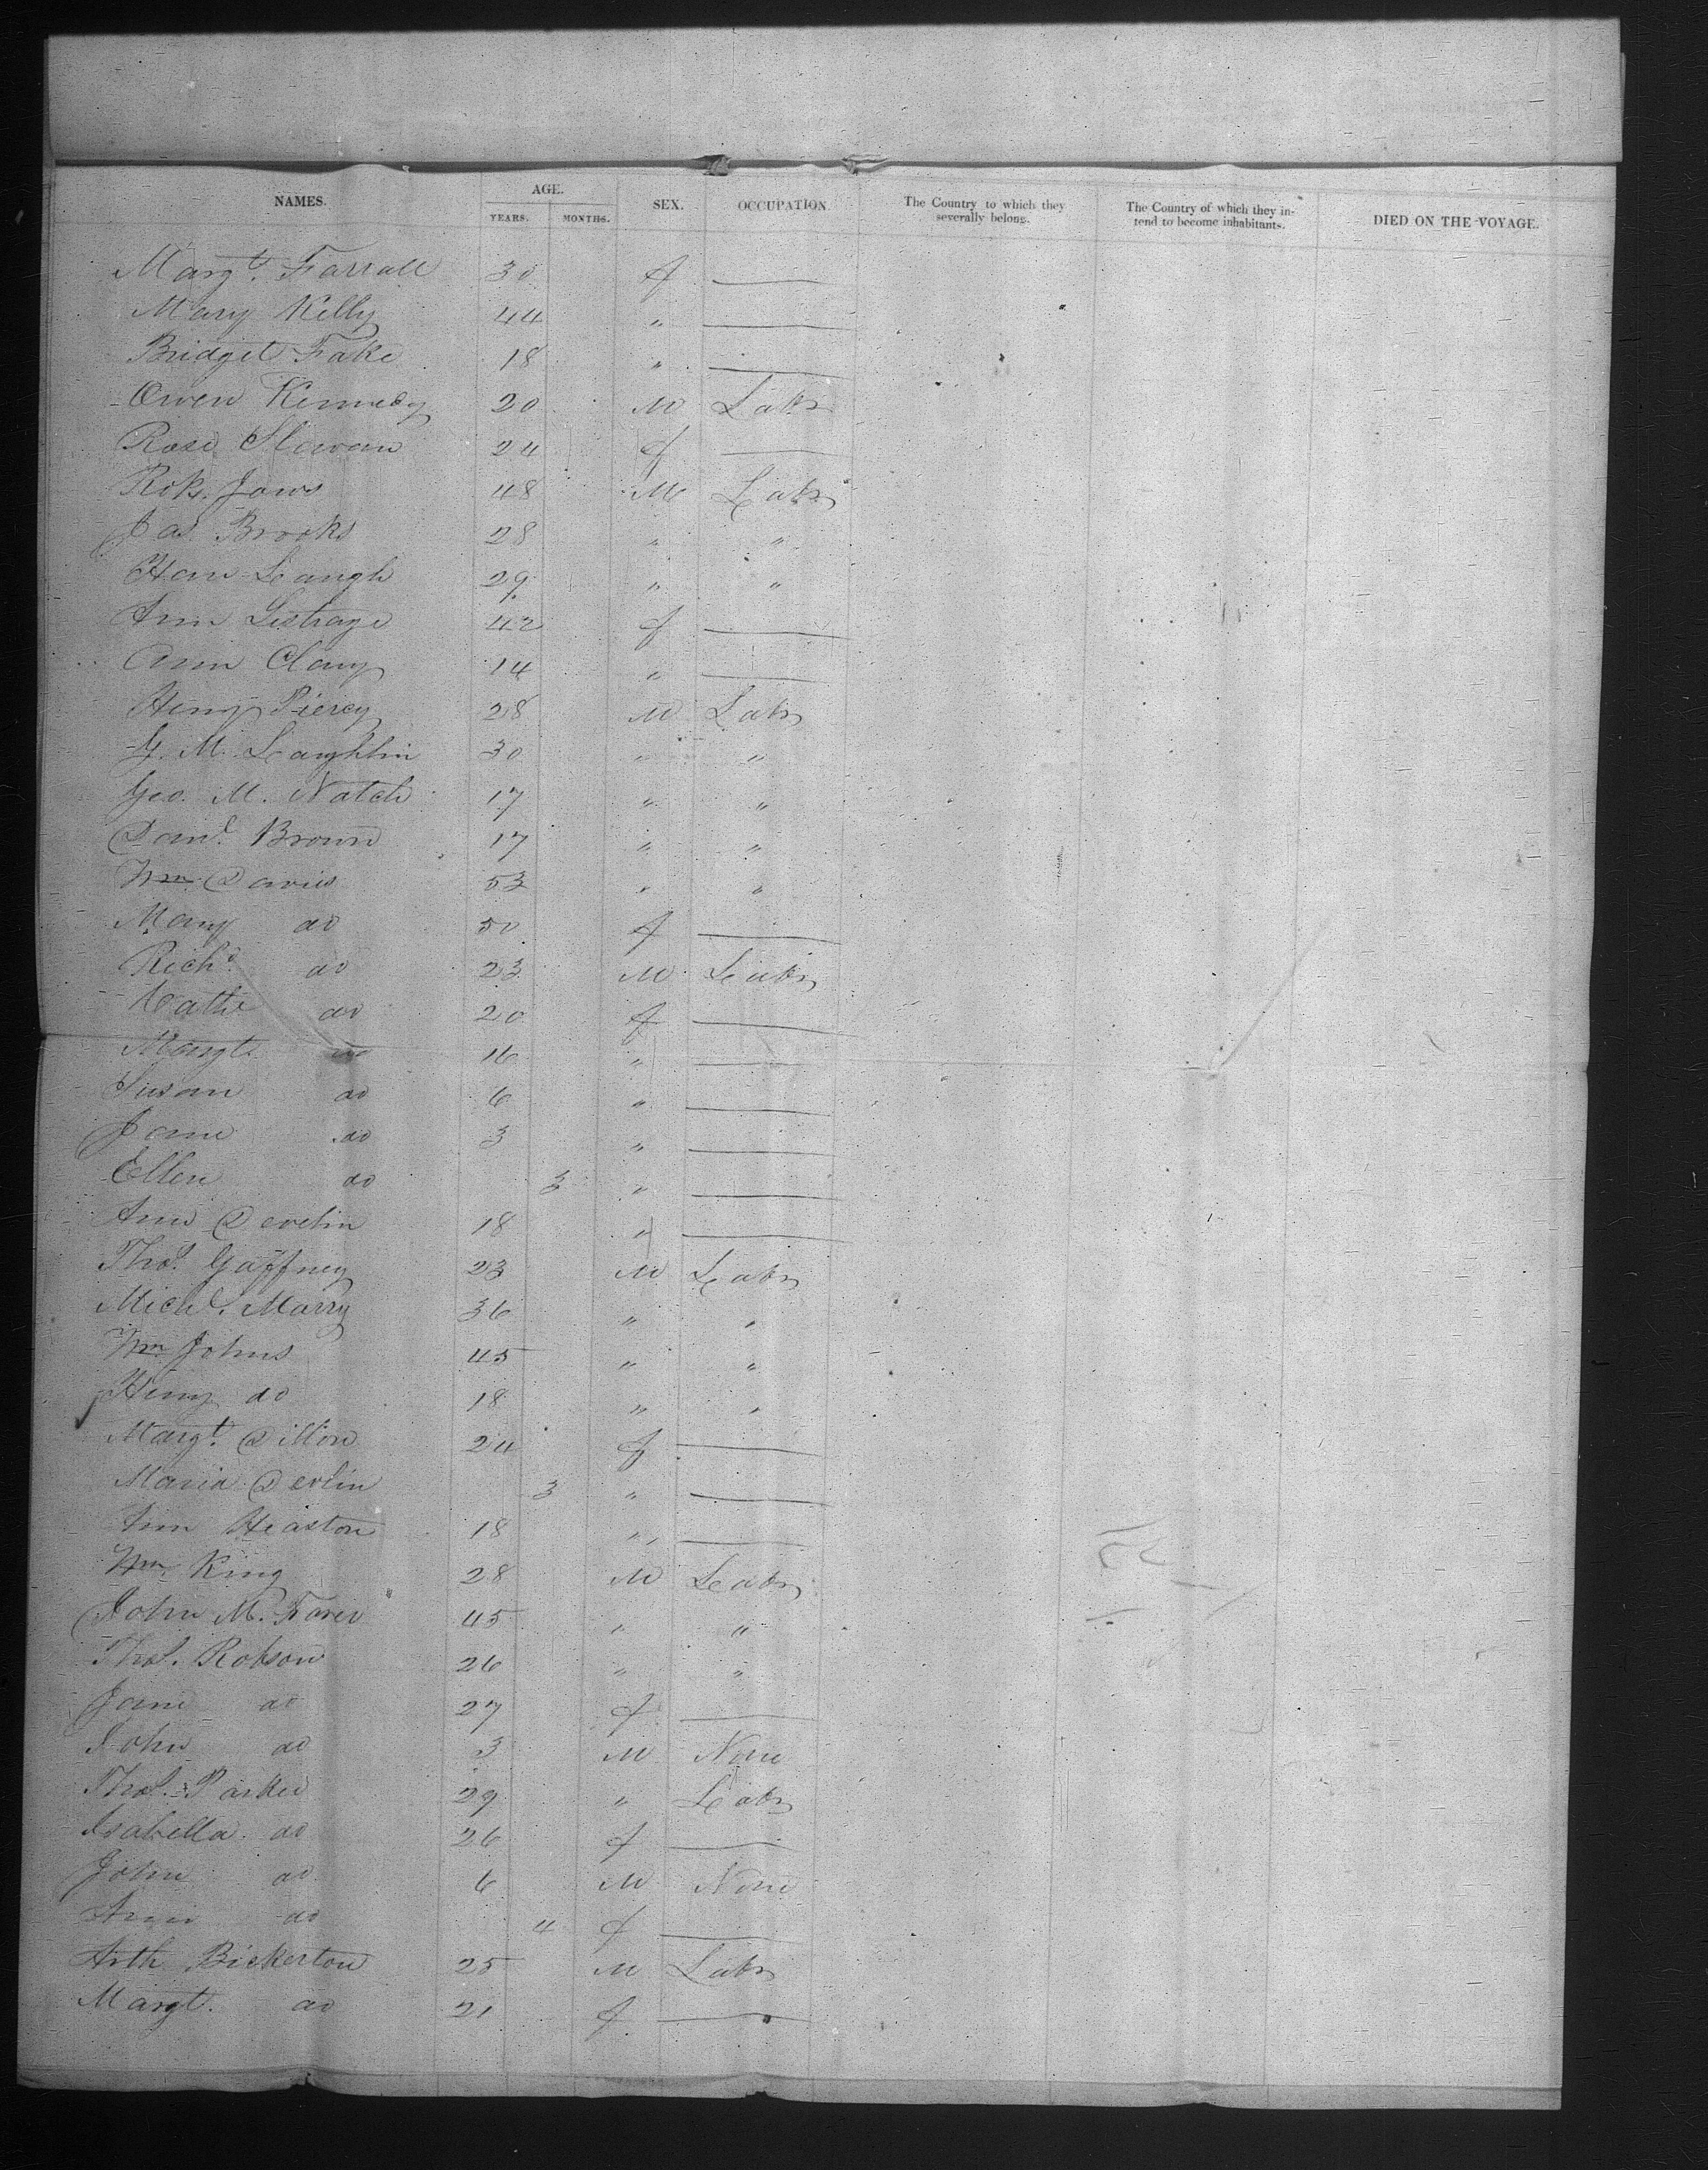 NAMES. AGE. SEX. OCCUPATION The Country to which they severally belong. The Country of which they intend to become inhabitants. DIED ON THE VOYAGE.
YEARS. MONTHS.
Margt. Farrall 30 f —
Mary Kelly 44 " —
Bridget Fake 18 " —
Owen Kennedy 20 M Labr
Rose Slavan 24 f —
48 M Labr
Jas. Brooks 28 " "
29 " "
Ann Lestrage 42 f —
Ann Clany 14 " —
Heny Piercy 28 M Labr
G. M. Laughlin 30 " "
Geo. M. Natch 17 " "
Danl. Brown 17 " "
Wm. Davies 53 " "
Mary do 50 f —
Richd. do 23 M Labr
Cathe do 20 f —
Margt. do 16 " —
Susan do 6 " —
Jane do 3 " —
Ellen do 3 " —
Ann Devlin 18 " —
Thos. Gaffney 23 M Labr
Michl. Marry 36 " "
Wm. Johns 45 " "
Heny do 18 " "
Margt. Dillon 24 f —
Maria Devlin 3 " —
Ann Heaston 18 " —
Wm. King 28 M Labr
John M. 45 " "
Thos. Robson 26 " "
Jane do 27 f —
John do 3 M None
Thos. Parker 29 " Labr
Isabella do 26 f —
John do 6 M None
Ann do 4 f —
Arth Bickerton 25 M Labr
Margt. do 21 f —